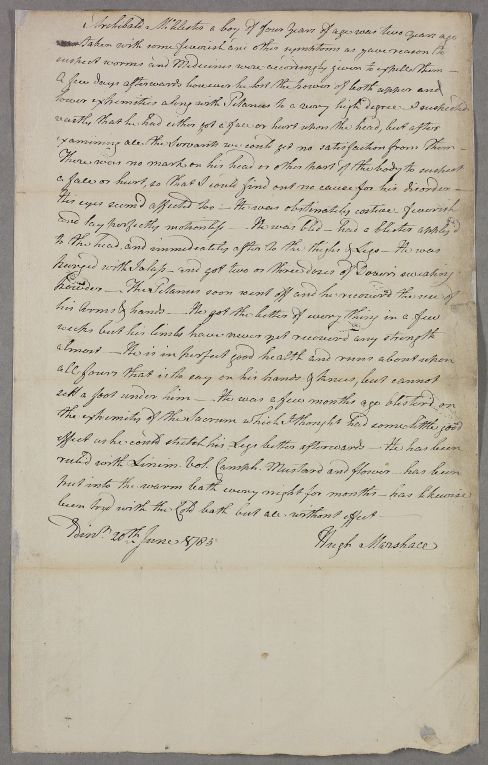 Archibald McAlester a boy of four years of age was two years ago
taken with some feverish and other symptoms as gave reason to
suspect worms and Medicines were accordingly given to expell them —
A few days afterwards however he lost the power of both upper and
lower extremities along with Tetanus to a very high degree. I suspected
mostly that he had either got a fall or hurt upon the head, but after
examining all the Servants we could get no satisfaction from them —
There was no mark on his head or other part of the body to suspect
a fall or hurt, so that I could find out no cause for his disorder —
His eyes seem'd affected too — He was obstinately costive feverish
and lay perfectly motionless — He was bled — had a blister applyed
to the head and immediately after to the thighs & Legs — He was
purged with Jalap — and got two or three doses of Dover's sweating
powder — The Tetanus soon went off and he recovered the use of
his Arms & hands — He got the better of every thing in a few
weeks but his limbs have never yet recovered any strength
almost — He is in perfect good health and runs about upon
all fours that is to say on his hands & knees, but cannot
sett a foot under him — He was a few months ago blistered on
the extremity of the Sacrum which I thought had some little good
effect as he could stretch his Legs better afterwards — He has been
rub'd with Linim. Vol. Camph. Mustard and flower — has been
put into the warm bath every night for months — has likewise
been try'd with the Cold bath but all without effect —
20th June 1785
Hugh Marshall